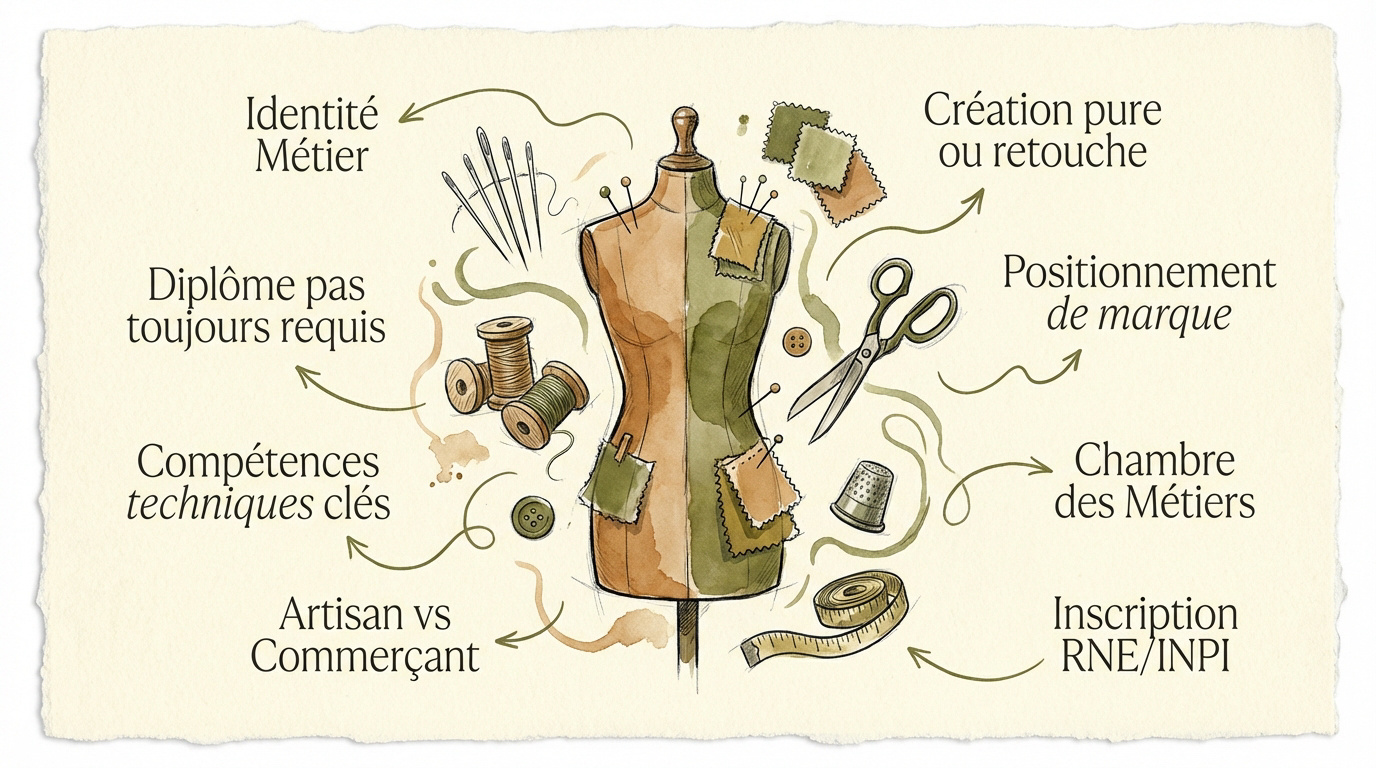 Identité
Métier
Diplôme pas
toujours requis
Compétences
techniques clés
Artisan vs
Commerçant
Création pure
ou retouche
Positionnement
de marque
Chambre
des Métiers
Inscription
RNE/INPI